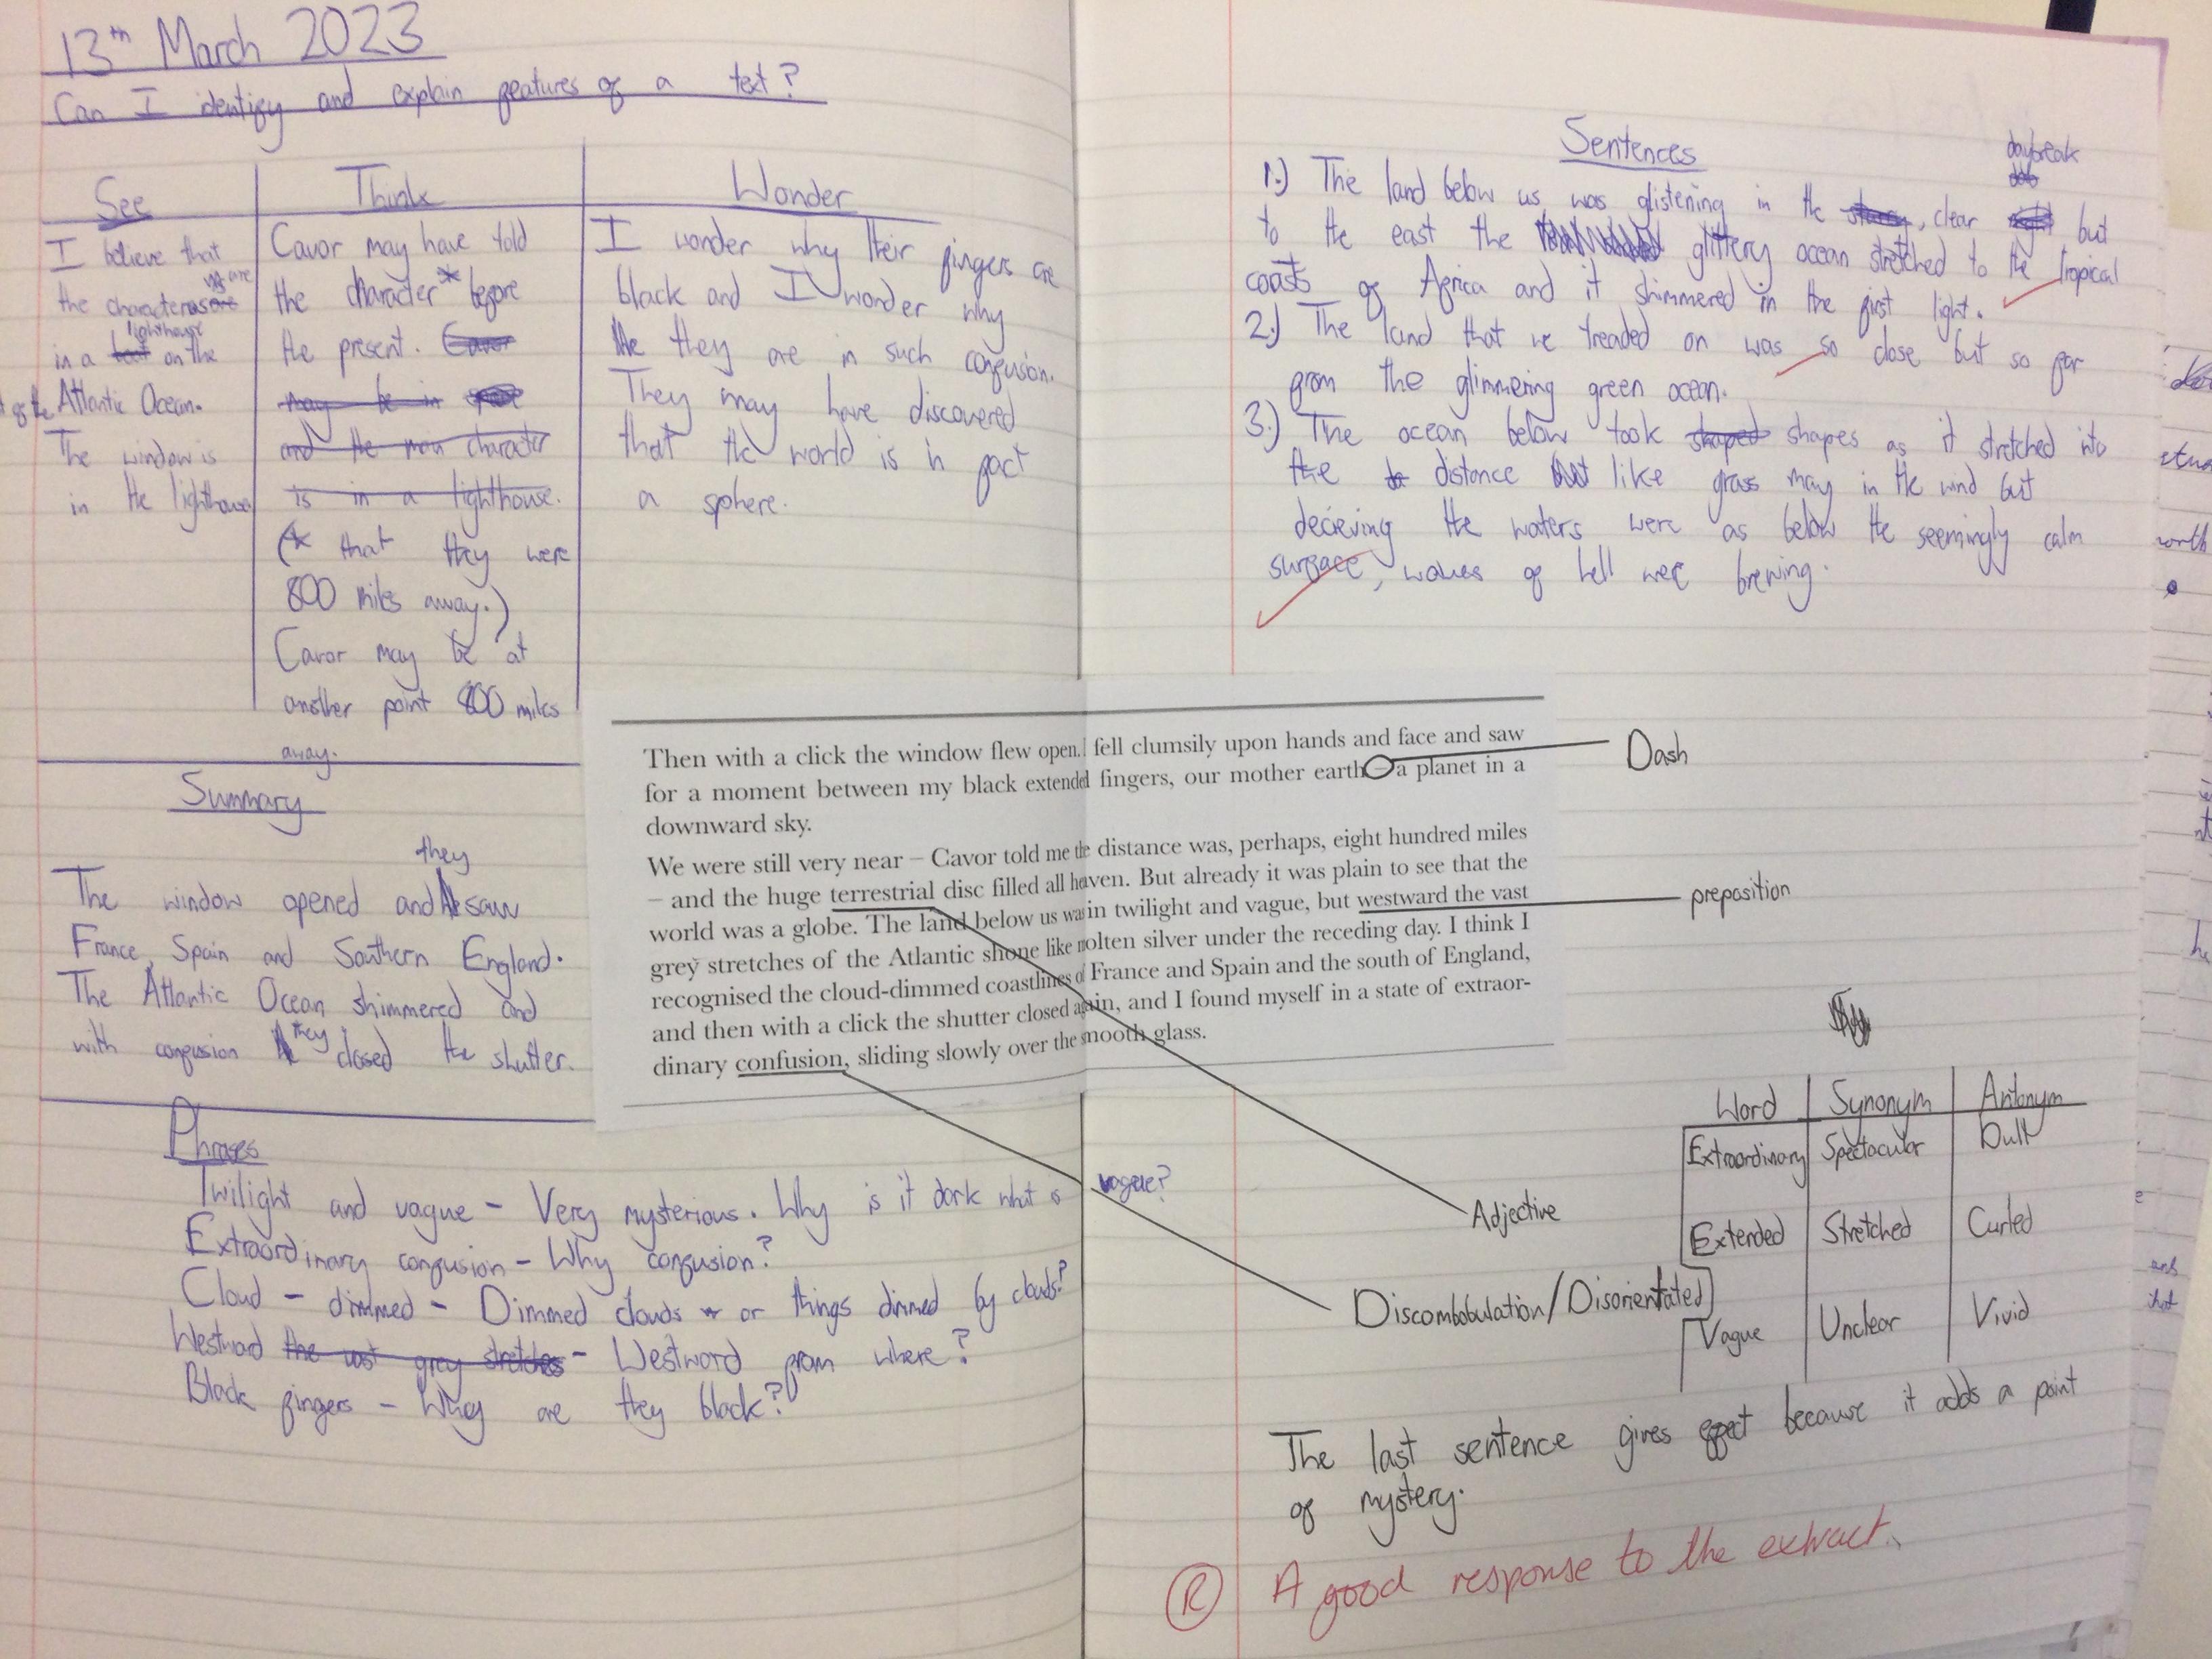 13th March 2023
Can I identify and explain features of a text?
See
I believe that
the characters are
in a lighthouse on the
of the Atlantic Ocean.
The window is
in the lighthouse
Think
Cavor may have told
the character* before
the present. Cavor
may be in
and the main character
is in a lighthouse.
(* that they were
800 miles away.)
Cavor may be at
another point 800 miles
away.
Wonder
I wonder why their fingers are
black and I wonder why
they are in such confusion.
They may have discovered
that the world is in fact
a sphere.
Summary
they
The window opened and saw
France, Spain and Southern England.
The Atlantic Ocean shimmered and
with confusion they closed the shutter.
Phrases
Twilight and vague - Very mysterious. Why is it dark what is vague?
Extraordinary confusion - Why confusion?
Cloud - dimmed - Dimmed clouds or things dimmed by clouds?
Westward the vast grey stretches - Westword from where?
Black fingers - Why are they black?
Sentences
daybreak
1.) The land below us was glistening in the starry, clear night but
to the east the glittery ocean stretched to the tropical
coasts of Africa and it shimmered in the first light.
2.) The land that we treaded on was so close but so far
from the glimmering green ocean.
3.) The ocean below took shaped shapes as it stretched into
the distance like grass may in the wind but
decieving the waters were as below the seemingly calm
surface, waves of hell were brewing.
Then with a click the window flew open. I fell clumsily upon hands and face and saw
for a moment between my black extended fingers, our mother earth – a planet in a
downward sky.
We were still very near – Cavor told me the distance was, perhaps, eight hundred miles
– and the huge terrestrial disc filled all heaven. But already it was plain to see that the
world was a globe. The land below us was in twilight and vague, but westward the vast
grey stretches of the Atlantic shone like molten silver under the receding day. I think I
recognised the cloud-dimmed coastlines of France and Spain and the south of England,
and then with a click the shutter closed again, and I found myself in a state of extraor-
dinary confusion, sliding slowly over the smooth glass.
Dash
preposition
Adjective
Discombobulation/Disorientated
Word Synonym Antonym
Extraordinary Spectacular Dull
Extended Stretched Curled
Vague Unclear Vivid
The last sentence gives effect because it adds a point
of mystery.
R A good response to the extract.